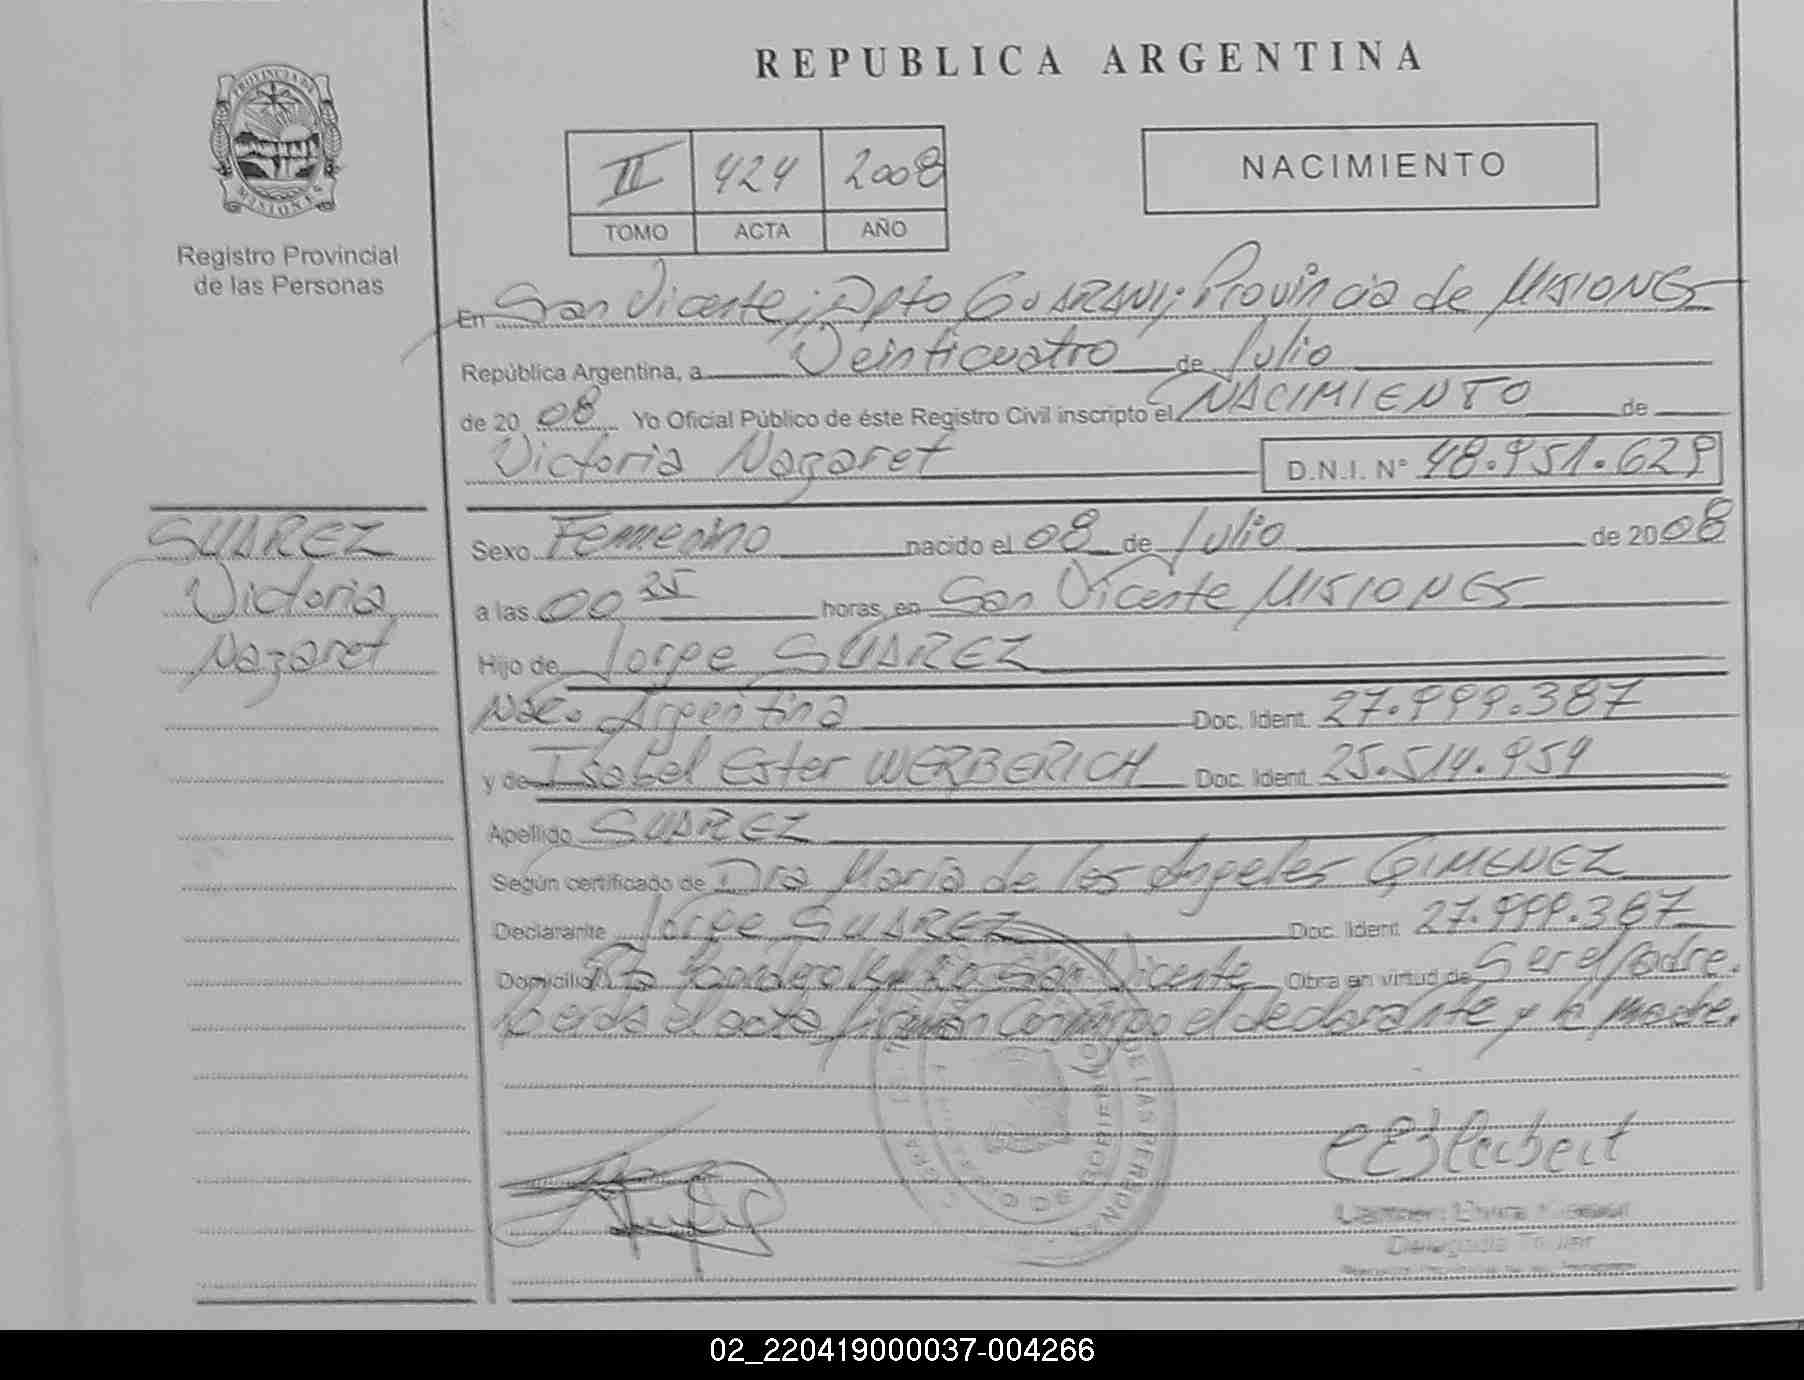 REPUBLICA ARGENTINA
PROVINCIA DE
MISIONES
Registro Provincial
de las Personas
II 424 2008
TOMO ACTA AÑO
NACIMIENTO
En San Vicente; Dpto GUARANI; Provincia de MISIONES
República Argentina, a Veinticuatro de Julio
de 2008 Yo Oficial Público de éste Registro Civil inscripto el NACIMIENTO de
Victoria Nazaret D.N.I. Nº 48.951.629
SUAREZ
Victoria
Nazaret
Sexo Femenino nacido el 08 de Julio de 2008
a las 00 25 horas, en San Vicente MISIONES
Hijo de Jorge SUAREZ
Nac. Argentina Doc. Ident. 27.999.387
y de Isabel Ester WERBERICH Doc. Ident. 25.514.959
Apellido SUAREZ
Según certificado de Dra María de los Angeles GIMENEZ
Declarante Jorge SUAREZ Doc. Ident. 27.999.387
Domicilio San Vicente Obra en virtud de Ser el padre.
el acta firman Conmigo el declarante y la madre.
DE LAS PERSONAS
02_220419000037-004266